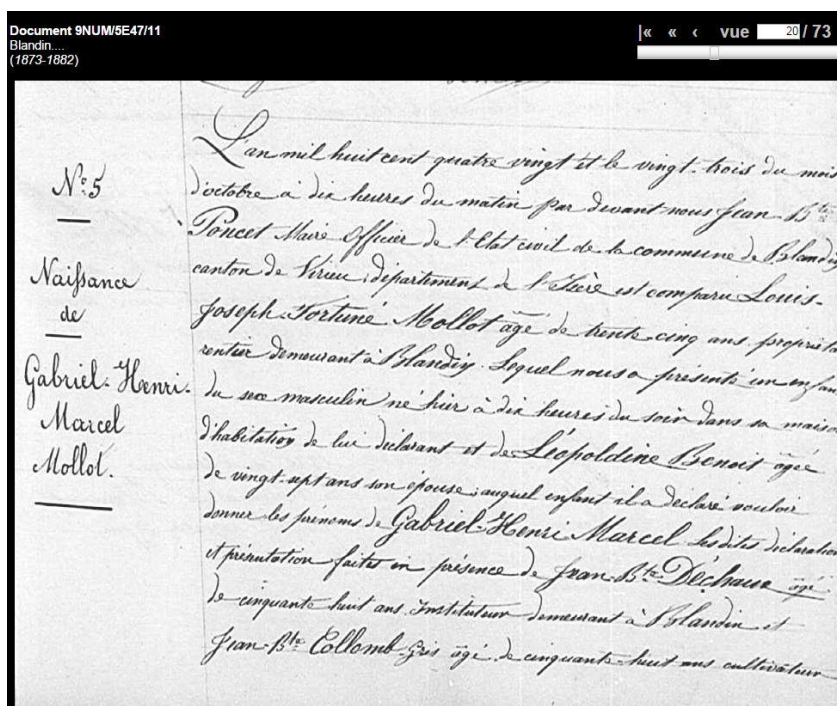 Document 9NUM/5E47/11
Blandin....
(1873-1882)
|« « ‹ vue 20 / 73
N° 5
Naissance
de
Gabriel-Henri-
Marcel
Mollot.
L'an mil huit cent quatre vingt et le vingt-trois du mois
d'octobre à dix heures du matin par devant nous Jean-Bte
Poncet Maire Officier de l'Etat civil de la commune de Blandin
canton de Virieu, département de l'Isère est comparu Louis-
Joseph-Fortuné Mollot âgé de trente cinq ans, propriét
rentier demeurant à Blandin. Lequel nous a présenté un enfan
du sexe masculin né hier à dix heures du soir dans sa maison
d'habitation de lui déclarant et de Léopoldine Benoit âgée
de vingt-sept ans son épouse; auquel enfant il a déclaré vouloir
donner les prénoms de Gabriel-Henri Marcel Lesdites déclaration
et présentation faites en présence de Jean-Bte Déchaux âgé
de cinquante huit ans Instituteur demeurant à Blandin et
Jean-Bte Collomb-Gris âgé de cinquante-huit ans cultivateur